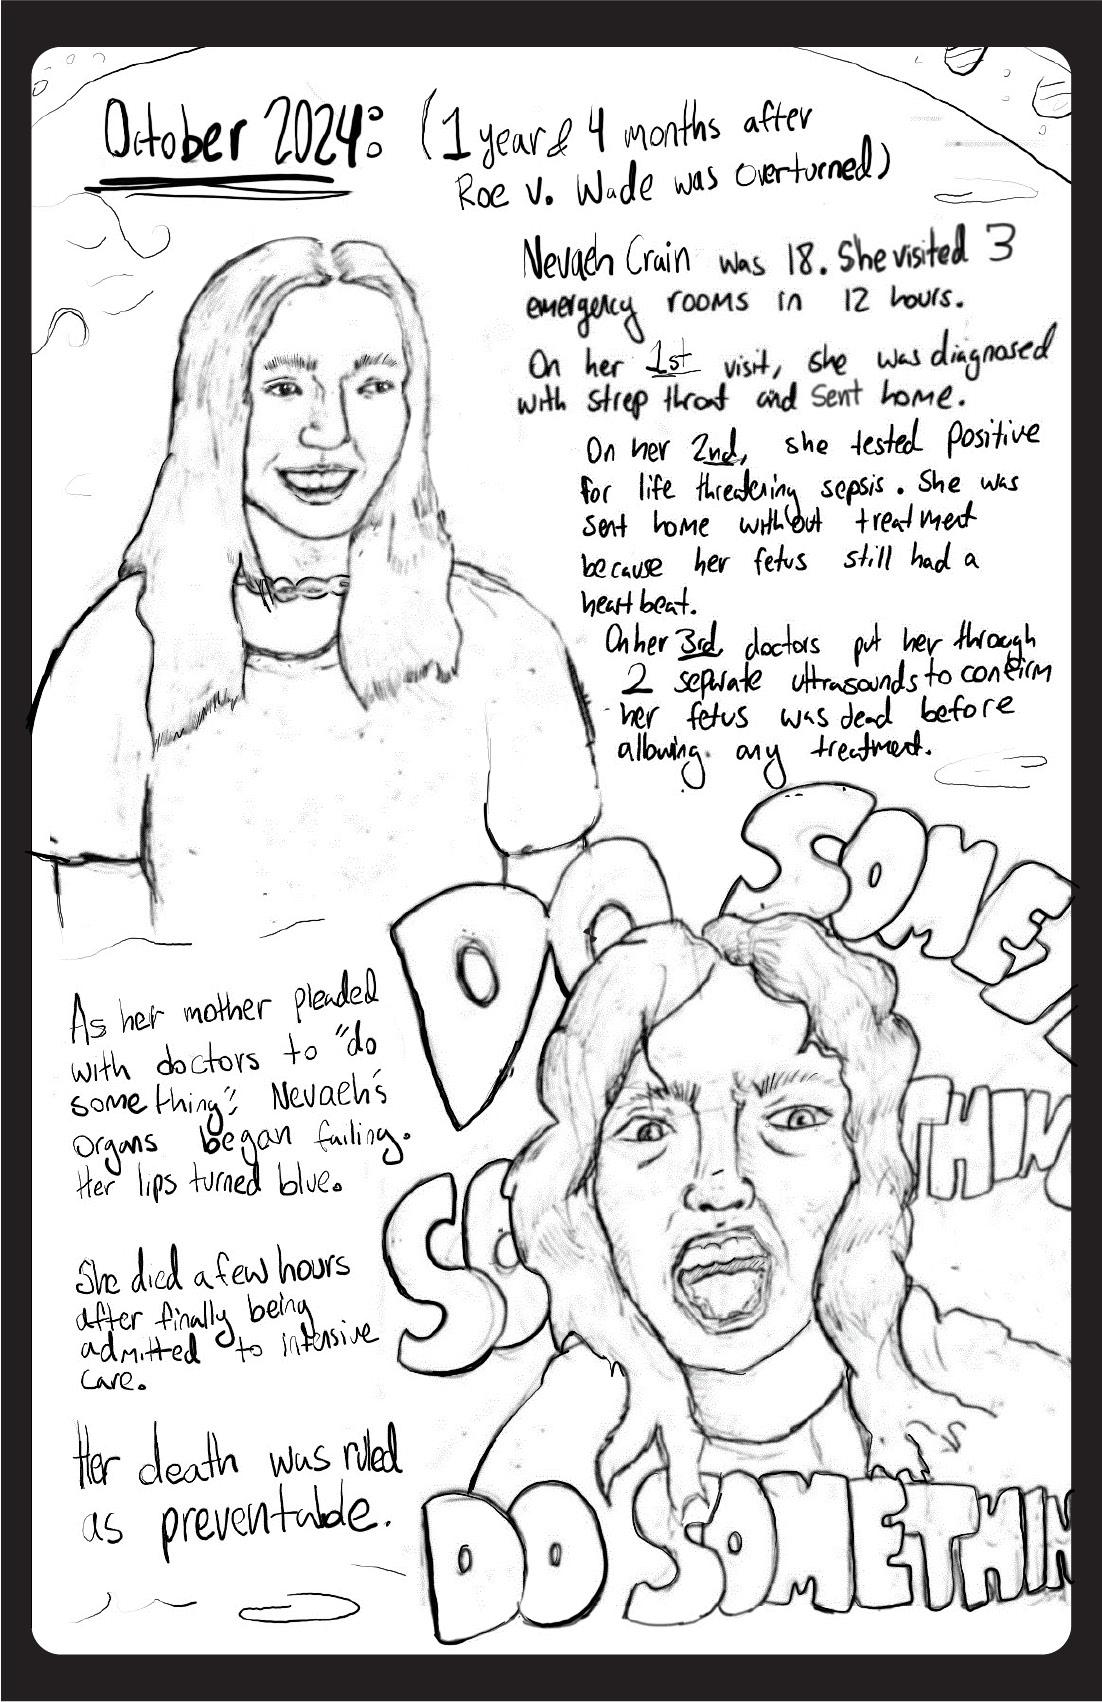 October 2024: (1 year & 4 months after
Roe v. Wade was overturned)
Nevaeh Crain was 18. She visited 3
emergency rooms in 12 hours.
On her 1st visit, she was diagnosed
with strep throat and sent home.
On her 2nd, she tested positive
for life threatening sepsis. She was
sent home without treatment
because her fetus still had a
heartbeat.
On her 3rd, doctors put her through
2 separate ultrasounds to confirm
her fetus was dead before
allowing any treatment.
DO
SOMET
THIN
SO
As her mother pleaded
with doctors to "do
something", Nevaeh's
organs began failing.
Her lips turned blue.
She died a few hours
after finally being
admitted to intensive
care.
Her death was ruled
as preventable.
DO SOMETHIN